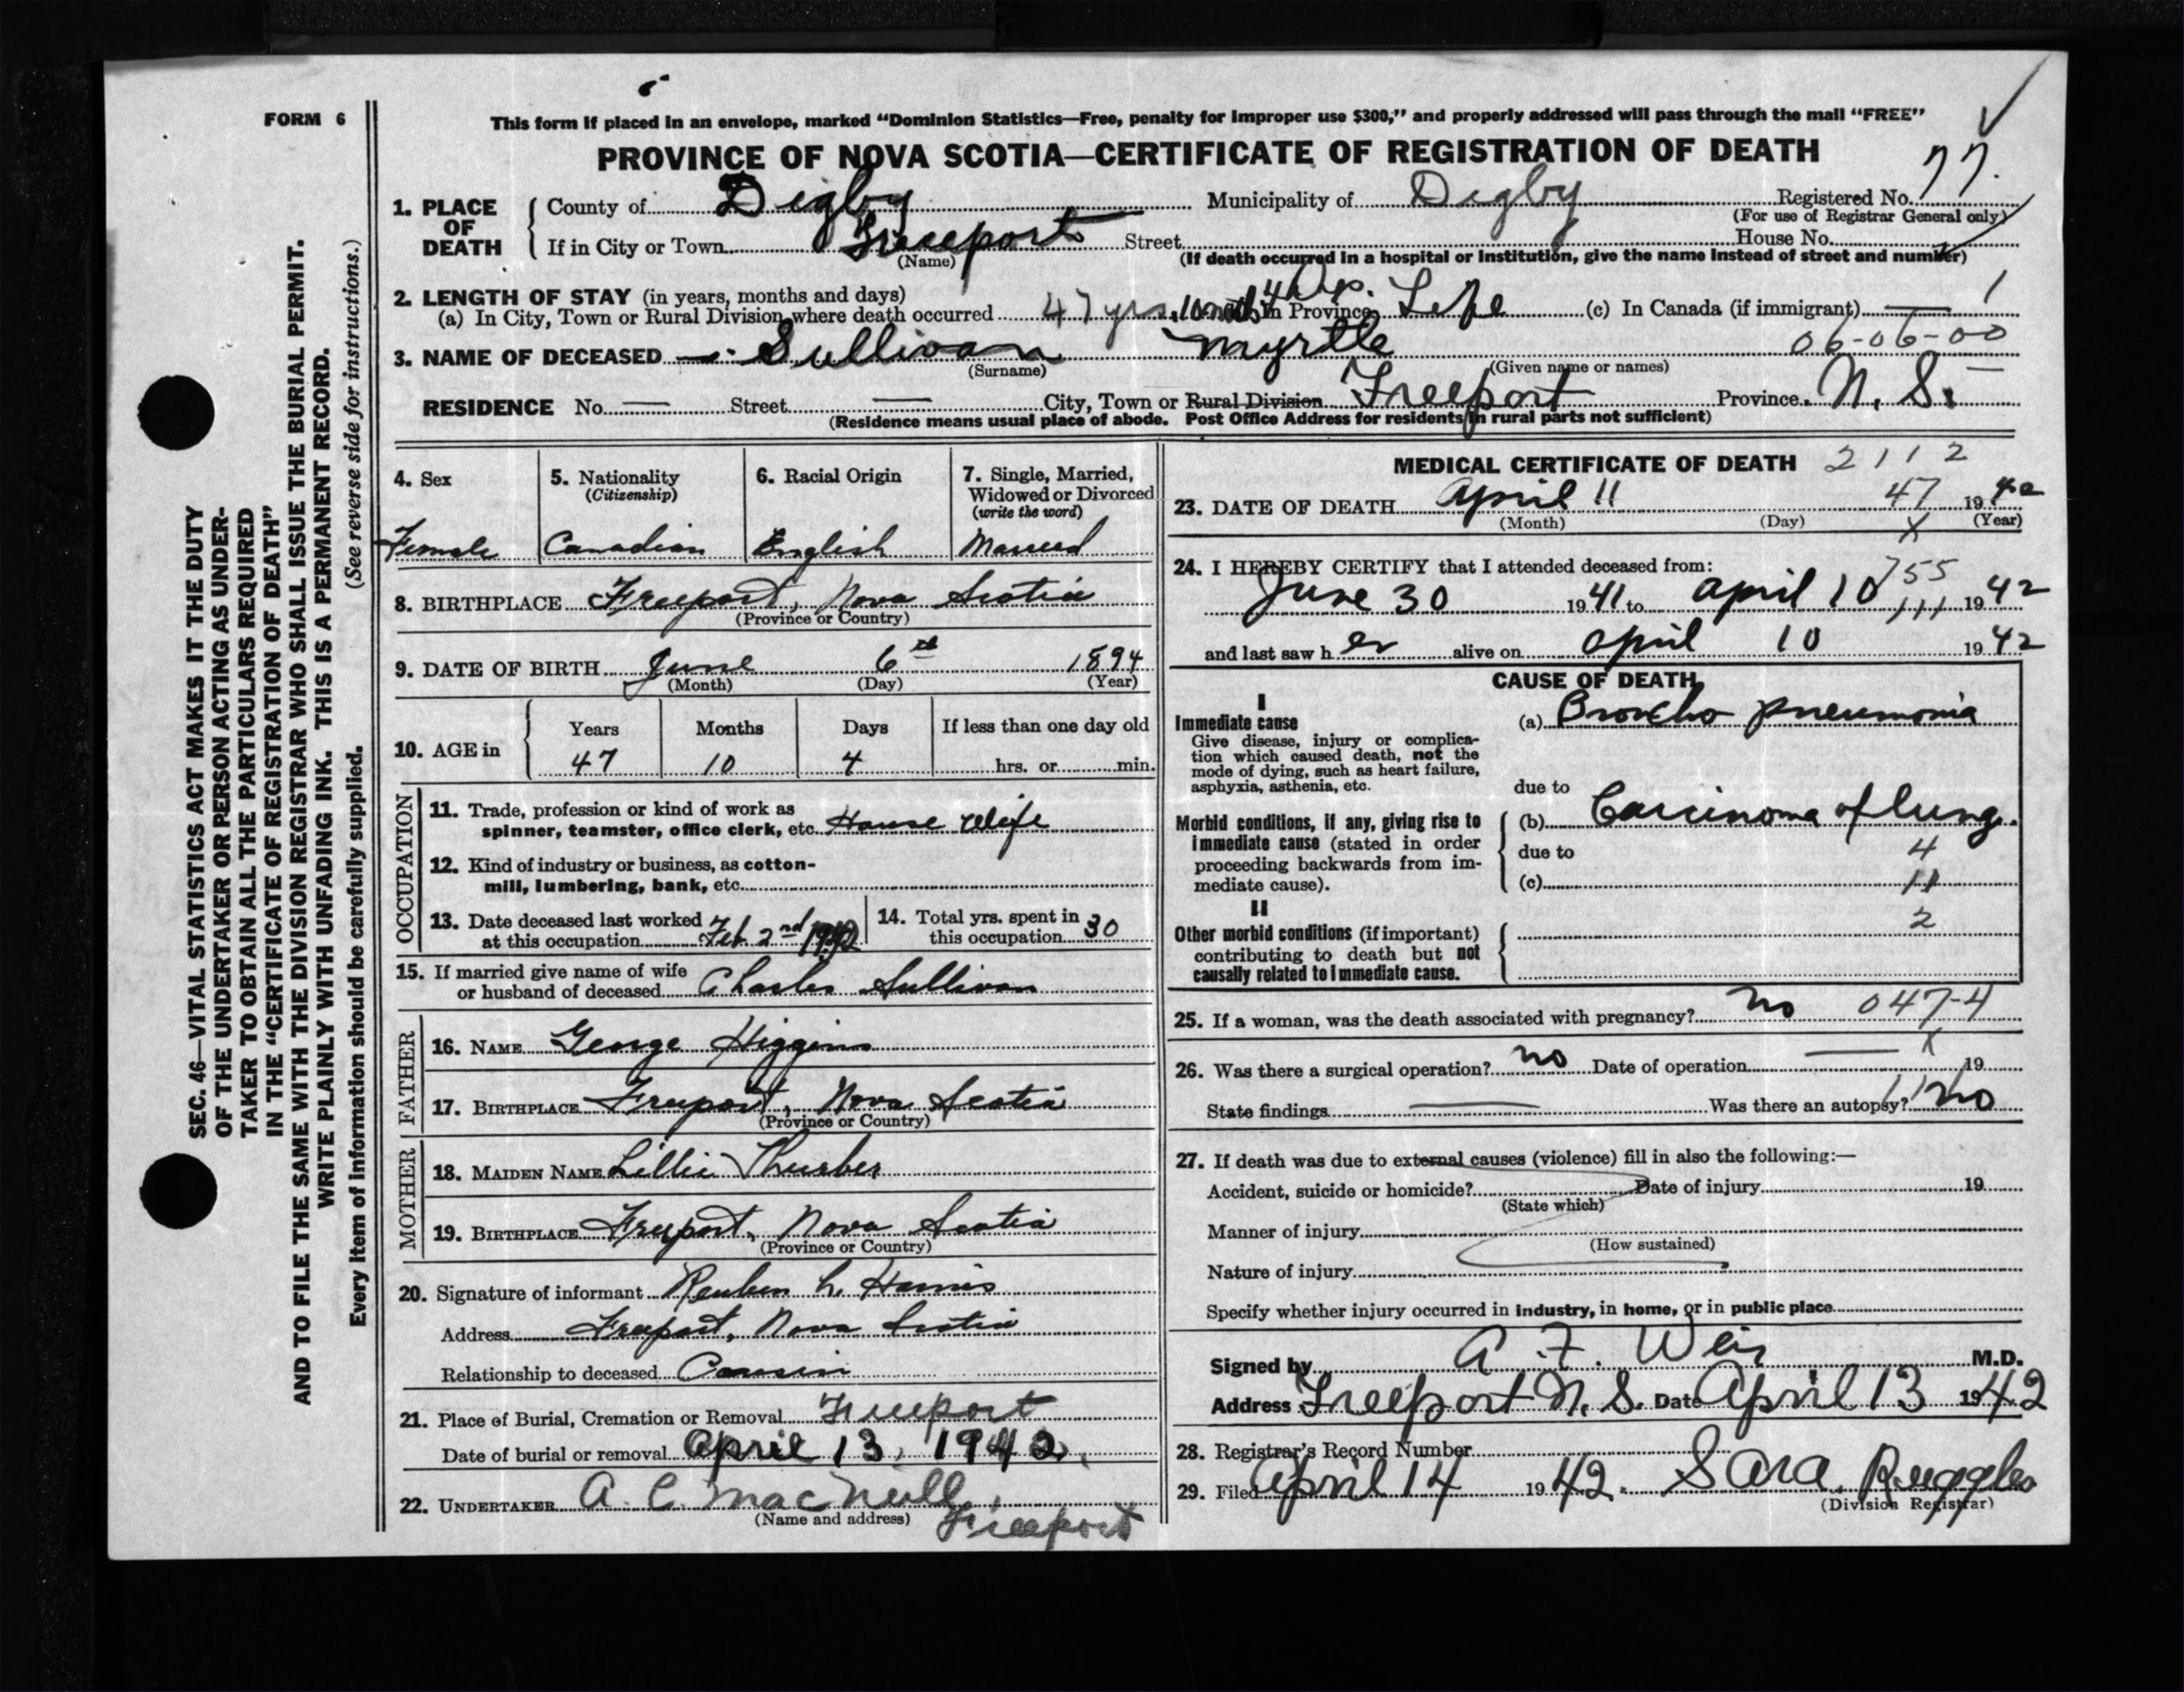 FORM 6
This form if placed in an envelope, marked “Dominion Statistics—Free, penalty for improper use $300,” and properly addressed will pass through the mail “FREE”
PROVINCE OF NOVA SCOTIA—CERTIFICATE OF REGISTRATION OF DEATH
1. PLACE OF DEATH
County of Digby Municipality of Digby Registered No. 77.
(For use of Registrar General only)
If in City or Town Freeport Street House No.
(Name) (If death occurred in a hospital or institution, give the name instead of street and number)
2. LENGTH OF STAY (in years, months and days)
(a) In City, Town or Rural Division where death occurred 47 yrs. 10 mths 4 Dys. In Province Life (c) In Canada (if immigrant) — 1
06-06-00
3. NAME OF DECEASED — Sullivan Myrtle
(Surname) (Given name or names)
RESIDENCE No. — Street — City, Town or Rural Division Freeport Province N. S.
(Residence means usual place of abode. Post Office Address for residents in rural parts not sufficient)
4. Sex
Female
5. Nationality
(Citizenship)
Canadian
6. Racial Origin
English
7. Single, Married,
Widowed or Divorced
(write the word)
Married
8. BIRTHPLACE Freeport, Nova Scotia
(Province or Country)
9. DATE OF BIRTH June 6th 1894
(Month) (Day) (Year)
10. AGE in
Years Months Days If less than one day old
47 10 4 hrs. or min.
OCCUPATION
11. Trade, profession or kind of work as
spinner, teamster, office clerk, etc. House Wife
12. Kind of industry or business, as cotton-
mill, lumbering, bank, etc.
13. Date deceased last worked
at this occupation Feb. 2nd 1942
14. Total yrs. spent in
this occupation 30
15. If married give name of wife
or husband of deceased Charles Sullivan
FATHER
16. NAME George Higgins
17. BIRTHPLACE Freeport, Nova Scotia
(Province or Country)
MOTHER
18. MAIDEN NAME Lillie Thurber
19. BIRTHPLACE Freeport, Nova Scotia
(Province or Country)
20. Signature of informant Reuben L. Harris
Address Freeport, Nova Scotia
Relationship to deceased Cousin
21. Place of Burial, Cremation or Removal Freeport
Date of burial or removal April 13, 1942.
22. UNDERTAKER A. C. MacNeill,
(Name and address) Freeport
MEDICAL CERTIFICATE OF DEATH 2112
23. DATE OF DEATH April 11 47 1942
(Month) (Day) (Year)
X
24. I HEREBY CERTIFY that I attended deceased from:
755
June 30 1941 to April 10 111 1942
and last saw h er alive on April 10 1942
CAUSE OF DEATH
I
Immediate cause
Give disease, injury or complica-
tion which caused death, not the
mode of dying, such as heart failure,
asphyxia, asthenia, etc.
(a) Broncho pneumonia
due to
Morbid conditions, if any, giving rise to
immediate cause (stated in order
proceeding backwards from im-
mediate cause).
(b) Carcinoma of lung.
due to 4
(c) 11
II
2
Other morbid conditions (if important)
contributing to death but not
causally related to immediate cause.
25. If a woman, was the death associated with pregnancy? no 047-4
X
26. Was there a surgical operation? no Date of operation — 19
State findings — Was there an autopsy? no
27. If death was due to external causes (violence) fill in also the following:—
Accident, suicide or homicide? Date of injury 19
(State which)
Manner of injury
(How sustained)
Nature of injury
Specify whether injury occurred in industry, in home, or in public place
Signed by A. F. Weir M.D.
Address Freeport N. S. Date April 13 1942
28. Registrar's Record Number
29. Filed April 14 1942. Sara Ruggles
(Division Registrar)
SEC. 46—VITAL STATISTICS ACT MAKES IT THE DUTY
OF THE UNDERTAKER OR PERSON ACTING AS UNDER-
TAKER TO OBTAIN ALL THE PARTICULARS REQUIRED
IN THE “CERTIFICATE OF REGISTRATION OF DEATH”
AND TO FILE THE SAME WITH THE DIVISION REGISTRAR WHO SHALL ISSUE THE BURIAL PERMIT.
WRITE PLAINLY WITH UNFADING INK. THIS IS A PERMANENT RECORD.
Every item of information should be carefully supplied. (See reverse side for instructions.)